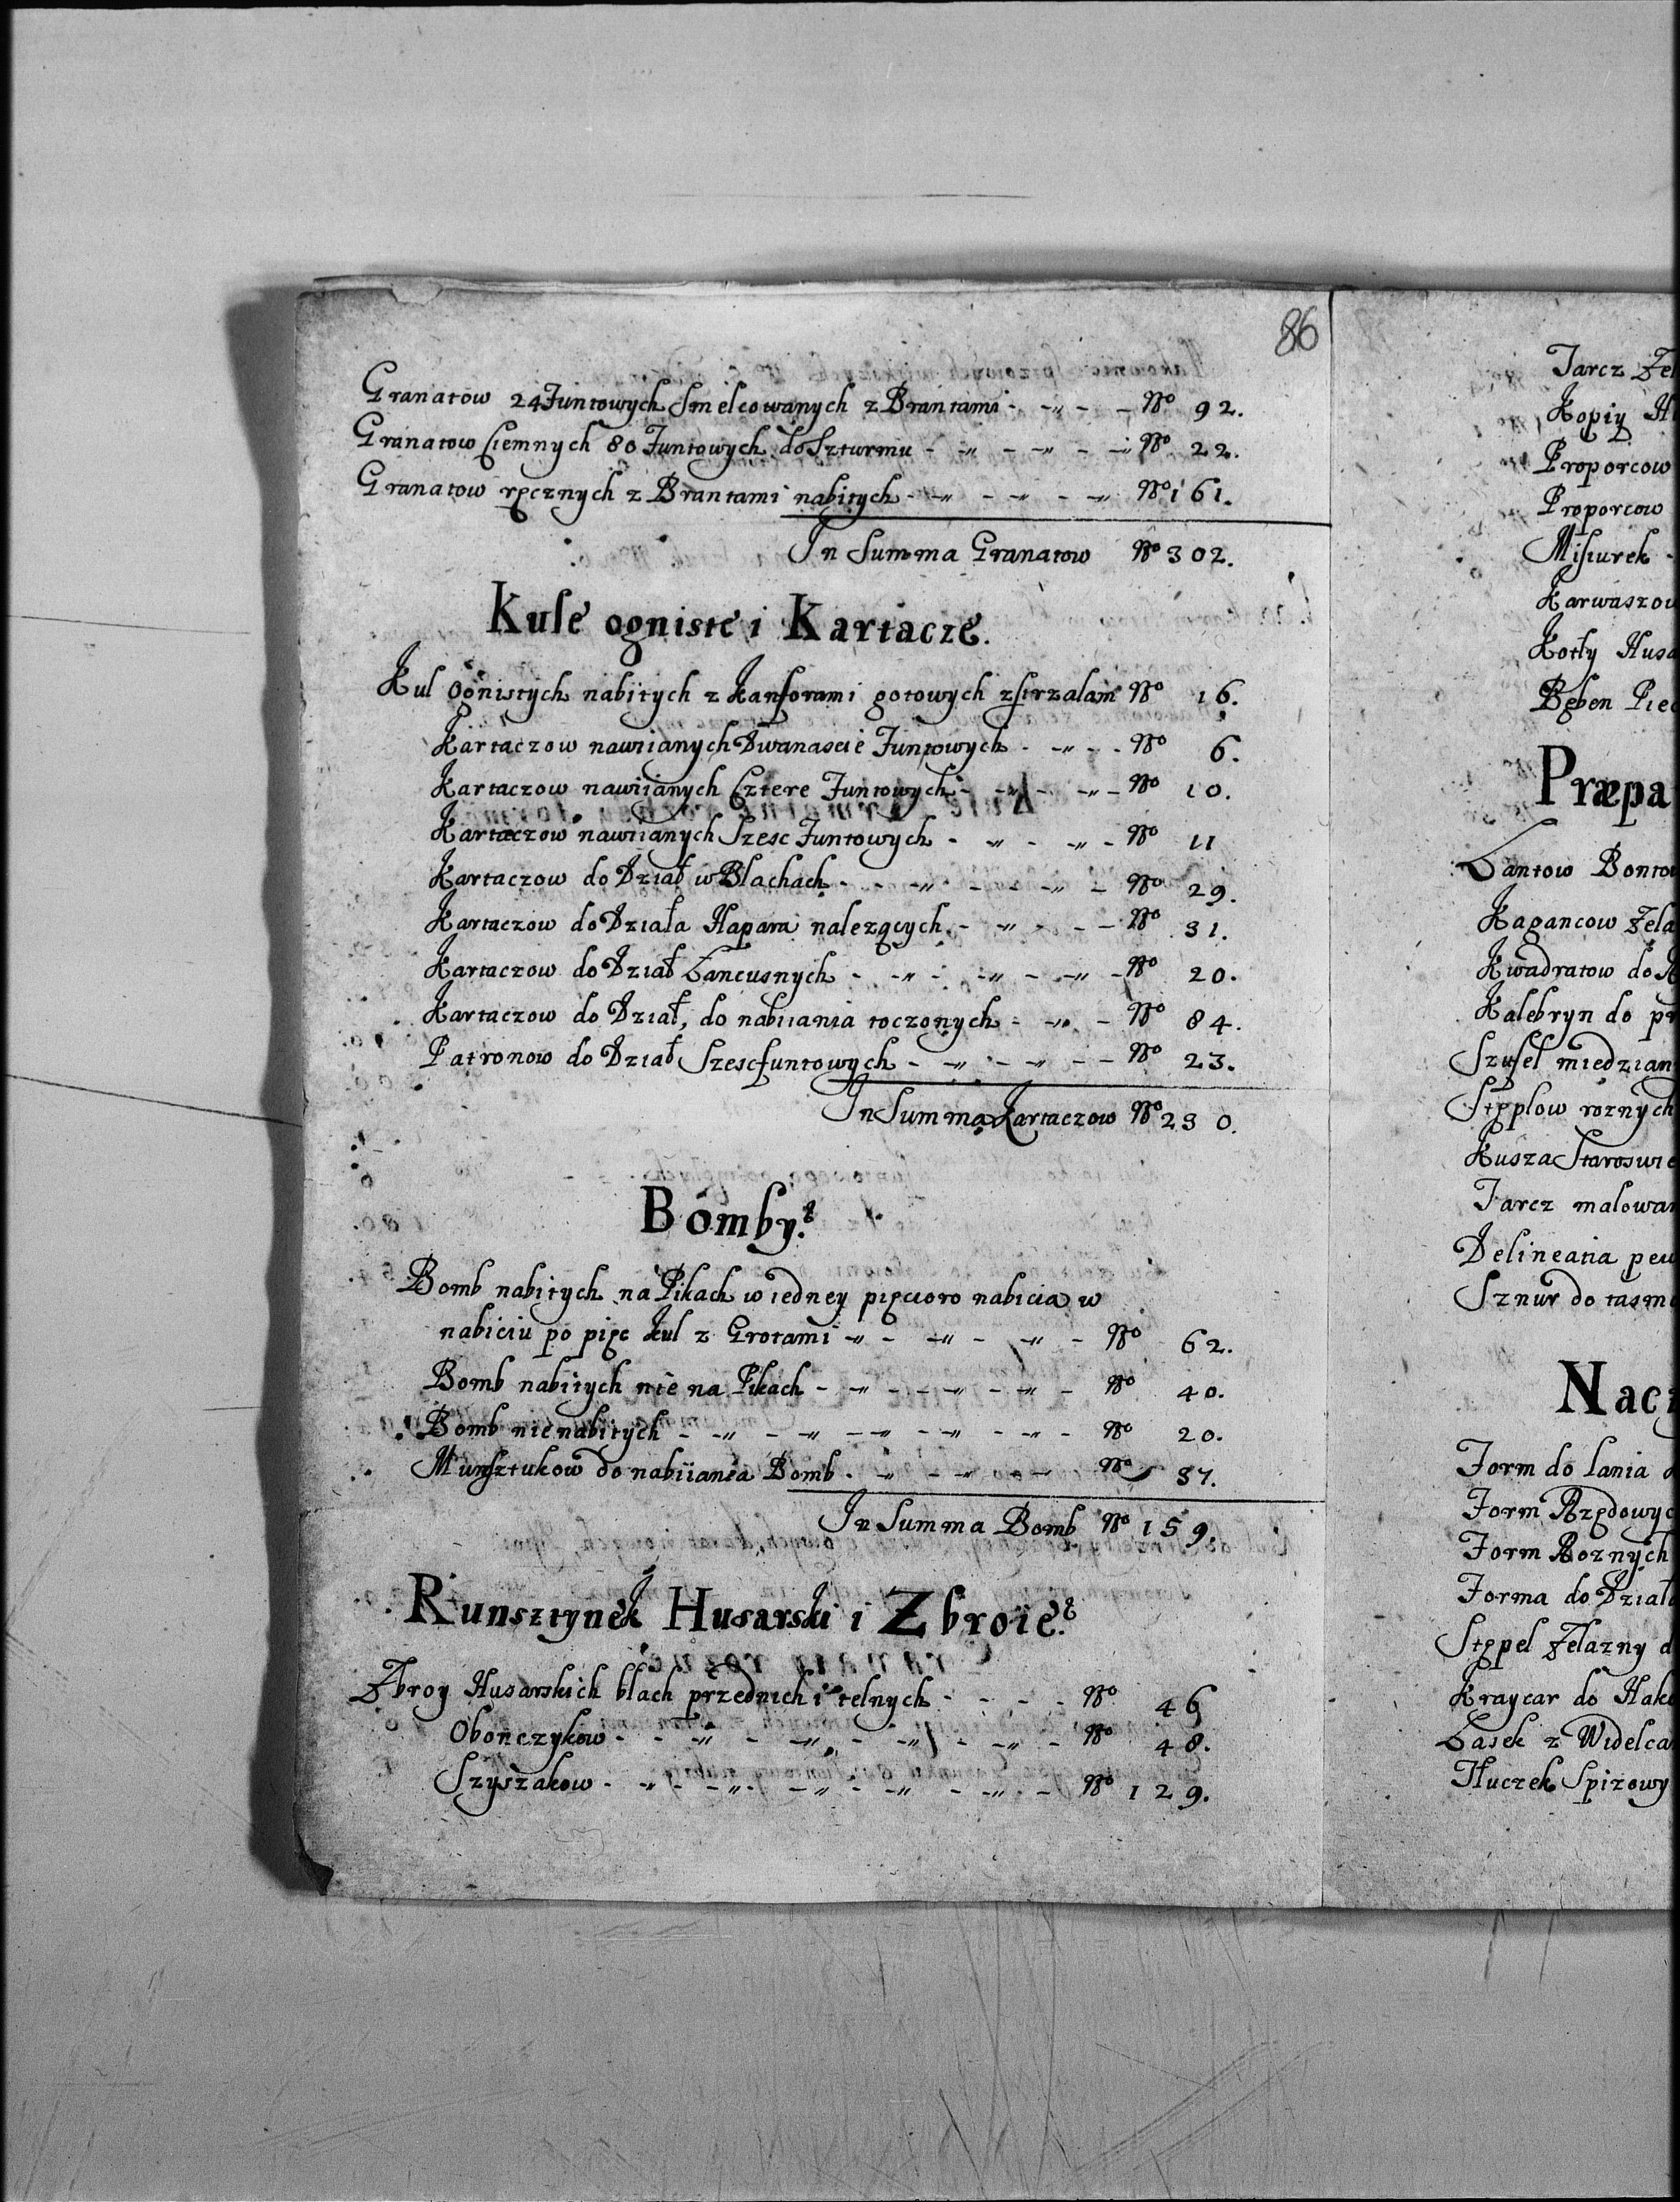 86
Granatow 24 Funtowych Smelcowanych z Brantami - -„- - No 92.
Granatow Ciemnych 80 Funtowych do Szturmu - -„ - -„ - -„ No 22.
Granatow ręcznych z Brantami nabitych - -„ - -„ - -„ No 161.
In Summa Granatow No 302.
Kule ogniste i Kartacze.
Kul Ognistych nabitych z Kanforami gotowych zstrzalam No 16.
Kartaczow nawiianych Dwanascie Funtowych - -„ - - No 6.
Kartaczow nawiianych Cztere Funtowych - -„ - -„ - No 10.
Kartaczow nawiianych Szesc Funtowych - -„ - -„ - No 11
Kartaczow do Dział w Blachach - - -„ - - -„ - No 29.
Kartaczow do Działa Hapara nalezących - -„ - - - No 31.
Kartaczow do Dział Łancusnych - -„ - -„ - -„ - No 20.
Kartaczow do Dział, do nabiiania toczonych - -„ - No 84.
Patronow do Dział Szescfuntowych - -„ - -„ - - No 23.
In Summa Kartaczow No 230.
Bomby.
Bomb nabitych na Pikach w iedney pięcioro nabicia w
nabiciu po pięc kul z Grotami -„ - -„ - -„ - No 62.
Bomb nabitych nie na Pikach - -„ - -„ - -„ - No 40.
Bomb nienabitych - -„ - -„ - -„ - -„ - -„ - No 20.
Munsztukow do nabiiania Bomb - -„ - -„ - - No 37.
In Summa Bomb No 159.
Runsztynek Husarski i Zbroie.
Zbroy Husarskich blach przednich i telnych - - - - No 46
Obonczykow - - -„ - -„ - -„ - -„ - No 48.
Szyszakow - -„ - -„ - -„ - -„ - -„ - No 129.
Tarcz Żel
Kopiy H
Proporcow
Proporcow
Misiurek -
Karwaszow
Kotły Husa
Bęben Piec
Præpa
Łantow Bontow
Kagancow Żela
Kwadratow do K
Kalebryn do pr
Szufel miedzian
Stęplow roznych
Kusza Staroswie
Tarcz malowan
Delineatia pew
Sznur do tasm
Nacz
Form do lania
Form Rzędowyc
Form Roznych
Forma do Dział
Stępel Żelazny d
Kraycar do Hako
Łasek z Widelca
Tłuczek Spizowy